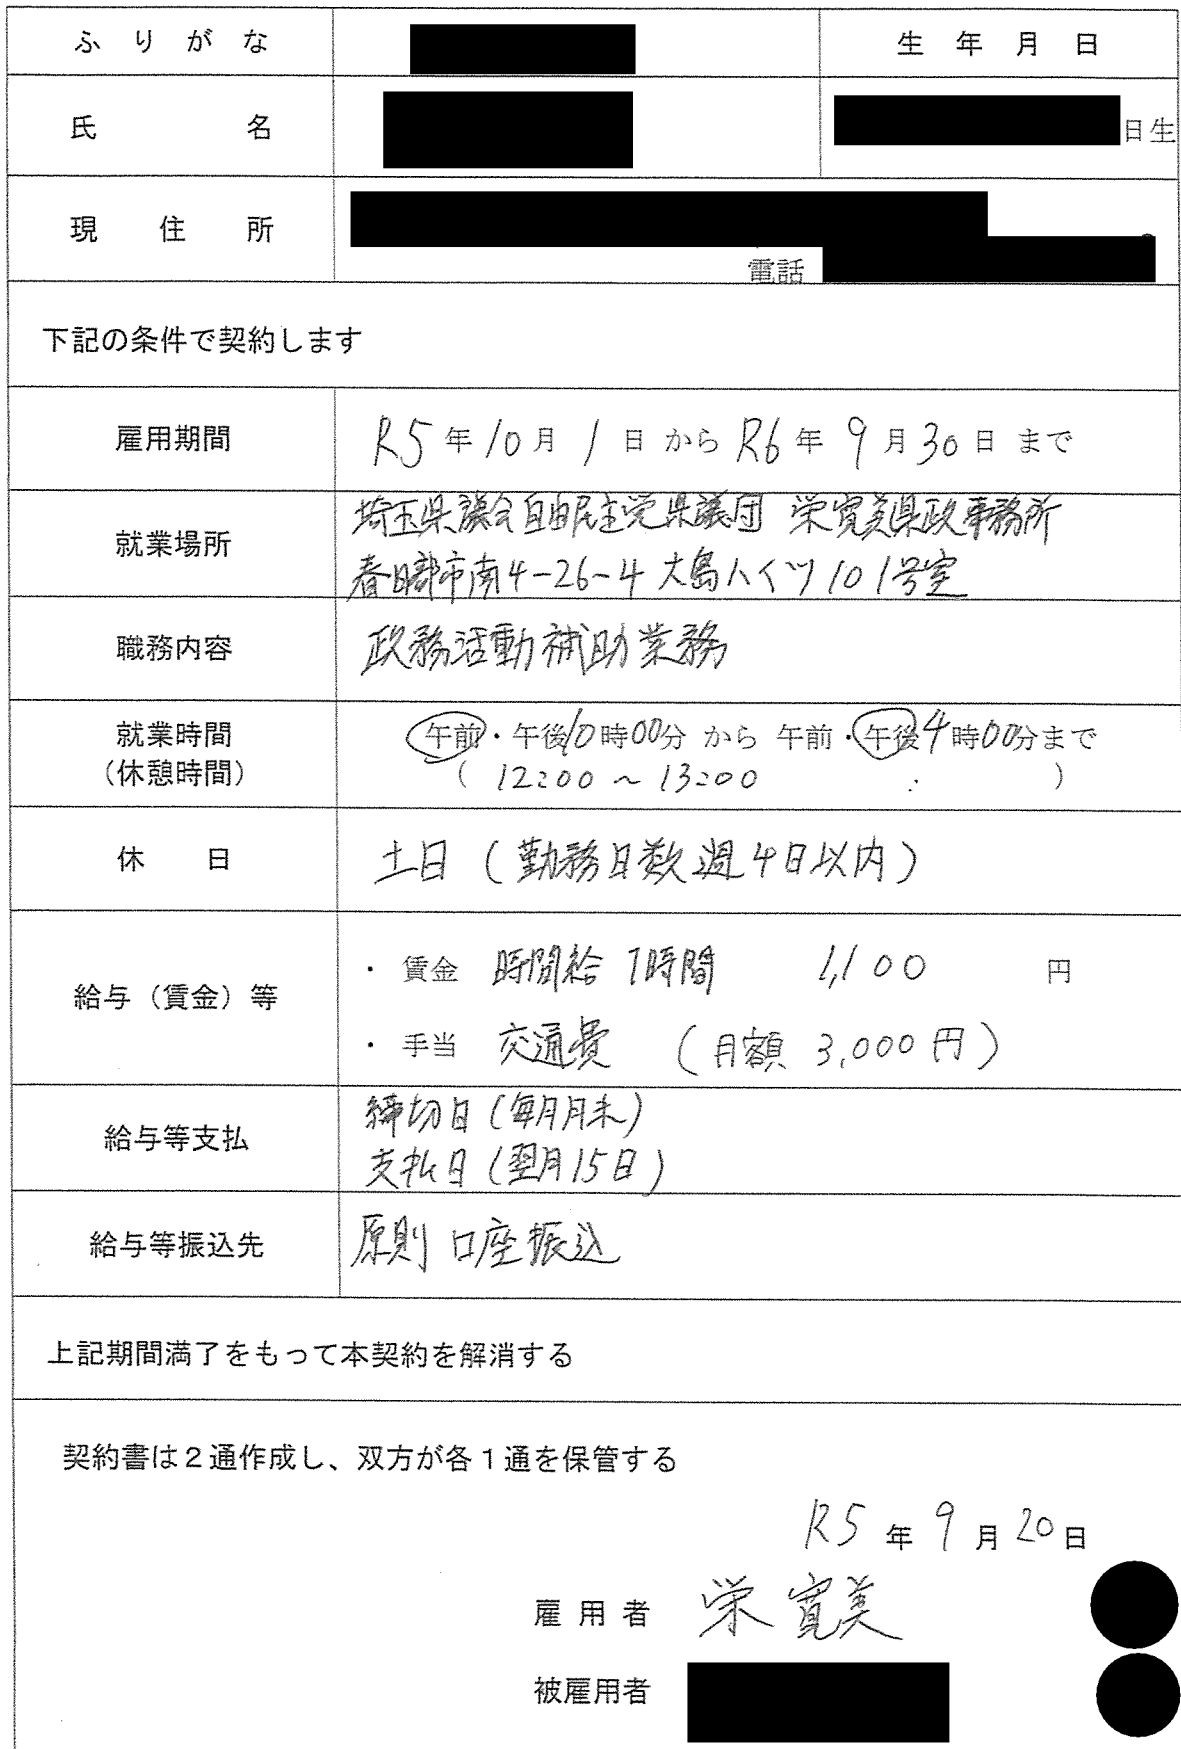 ふりがな
生年月日
氏名
日生
現住所
電話
下記の条件で契約します
雇用期間
R5年10月1日からR6年9月30日まで
就業場所
埼玉県議会自由民主党県議団 栄寛美県政事務所
春日部市南4-26-4 大島ハイツ101号室
職務内容
政務活動補助業務
就業時間
午前・午後10時00分から午前・午後4時00分まで
(休憩時間)
( 12:00 ~ 13:00 : )
休日
土日(勤務日数週4日以内)
給与(賃金)等
・賃金 時間給 1時間 1,100 円
・手当 交通費 (月額 3,000円)
給与等支払
締切日(毎月月末)
支払日(翌月15日)
給与等振込先
原則 口座振込
上記期間満了をもって本契約を解消する
契約書は2通作成し、双方が各1通を保管する
R5年9月20日
雇用者 栄 寛美
被雇用者